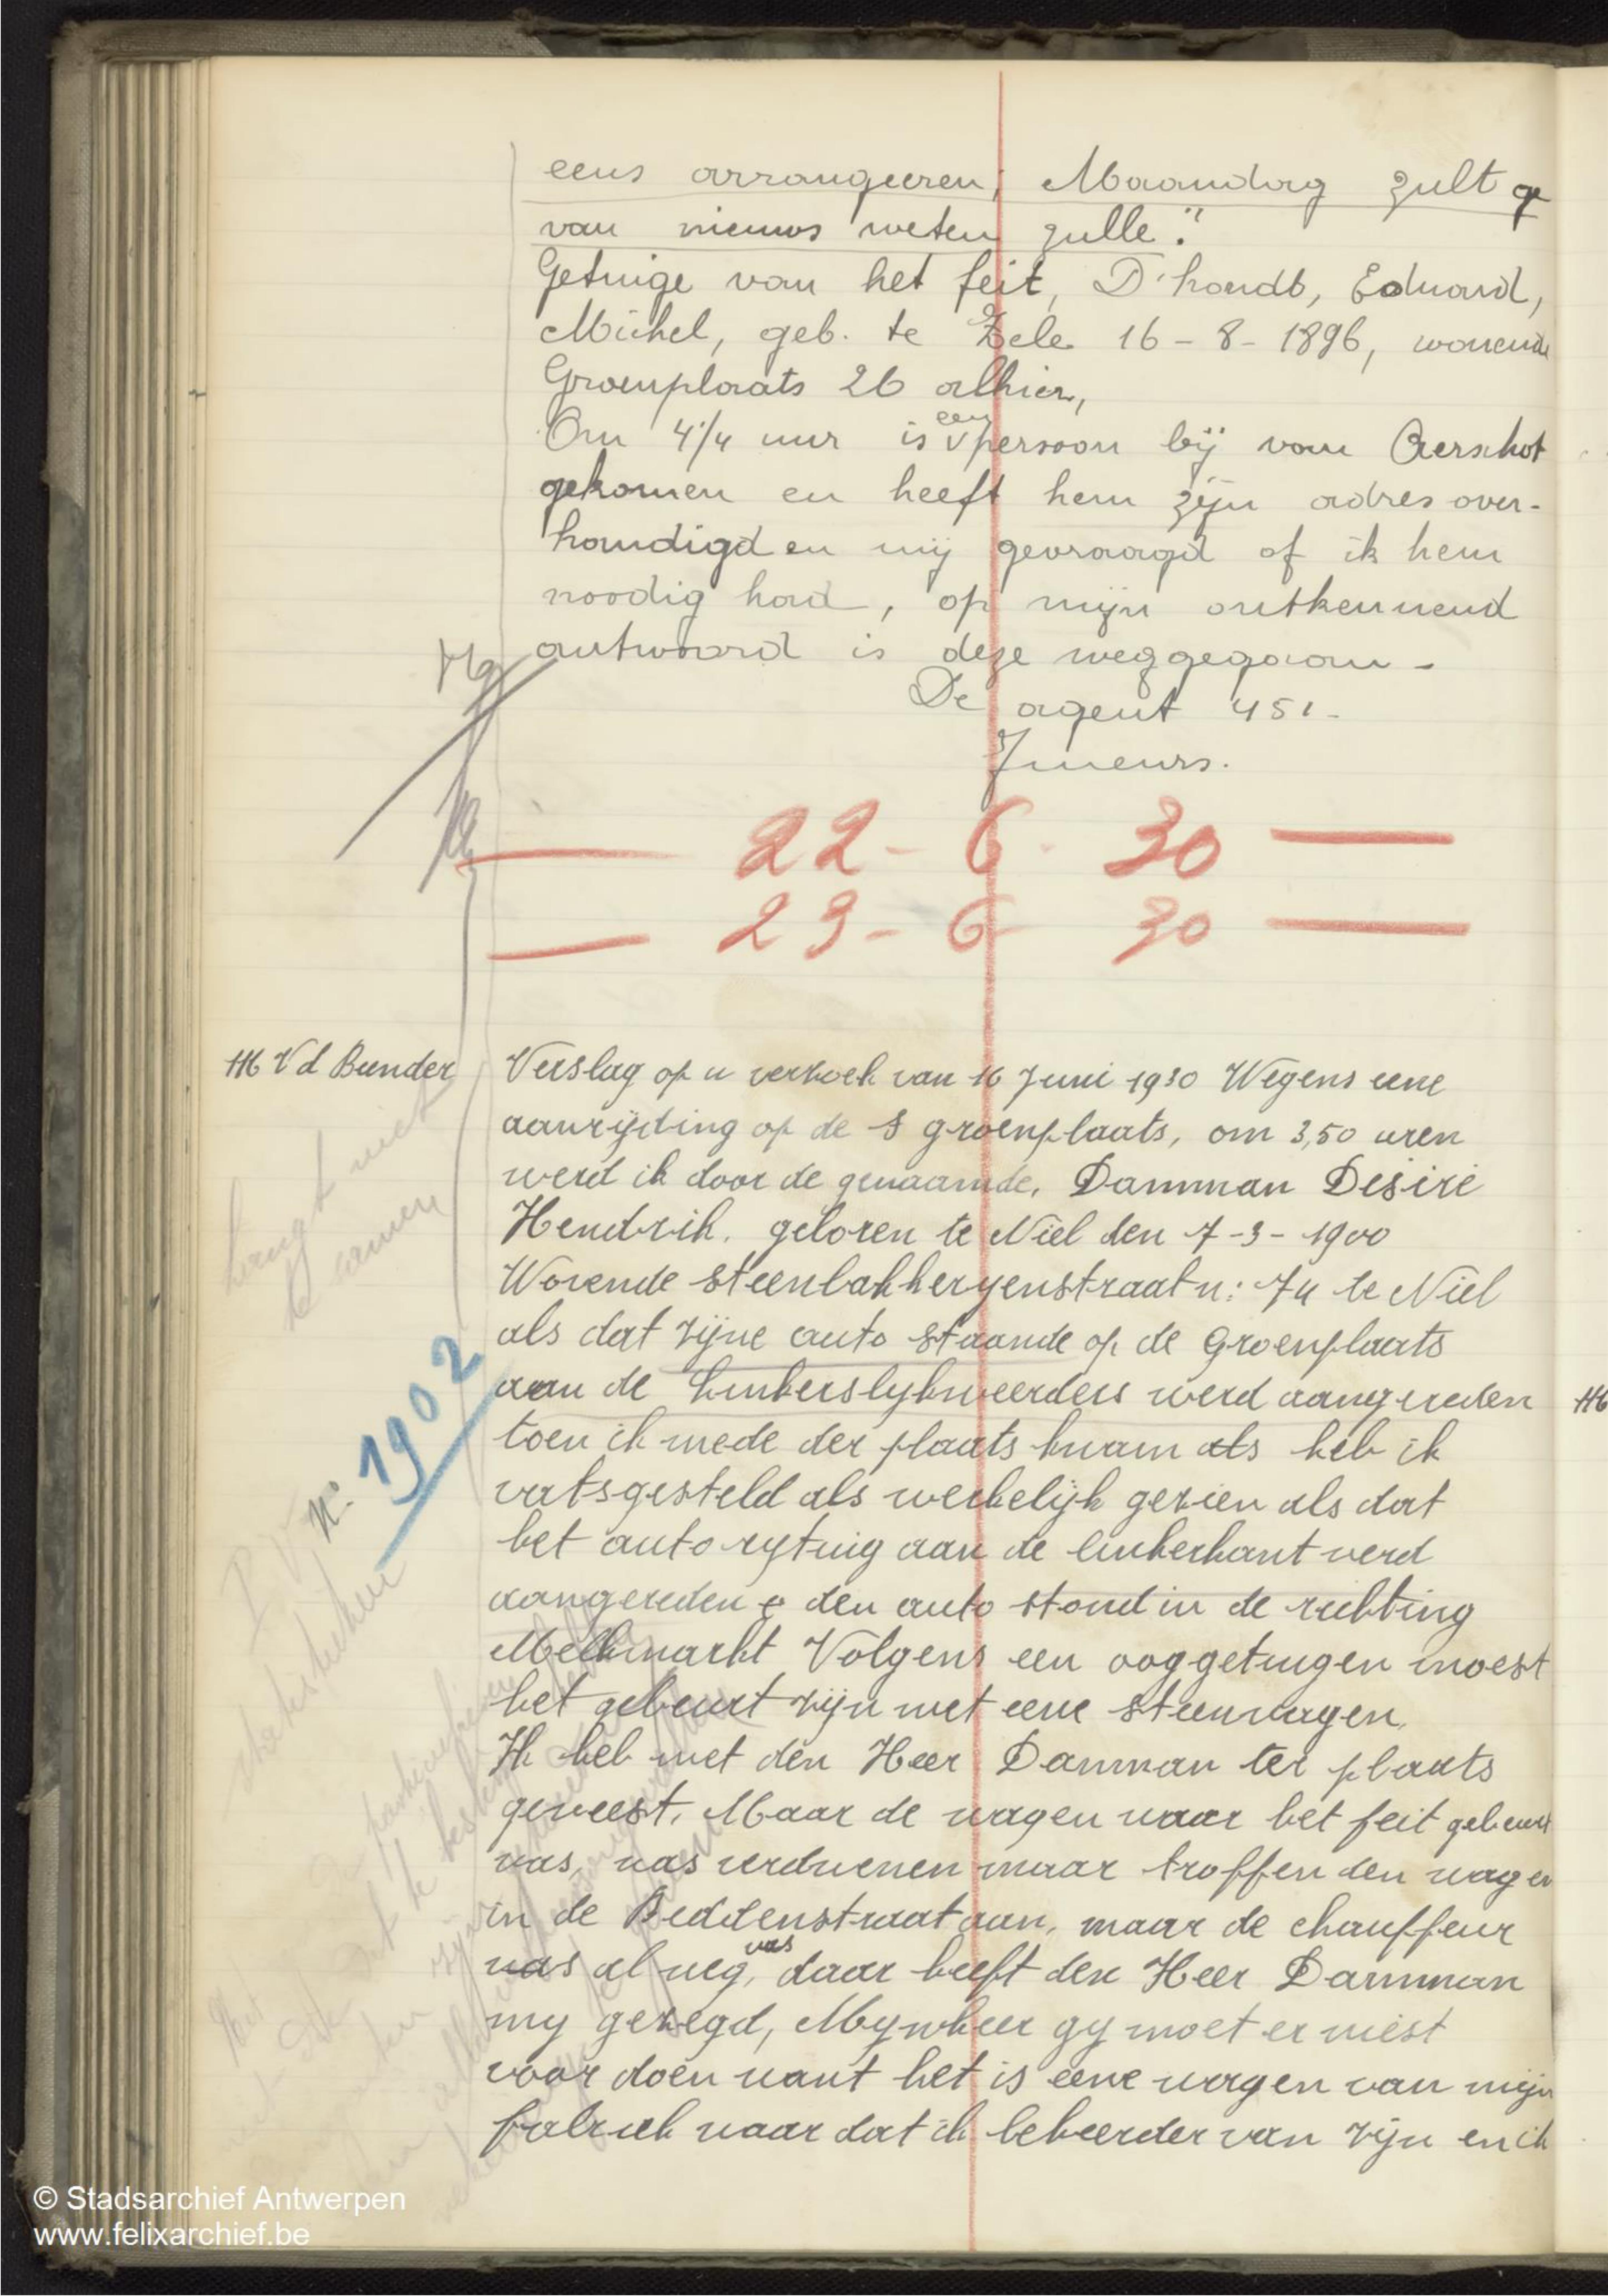 eens arrangeeren, Maandag zult ge
van nieuws weten zulle."
Getuige van het feit, D'hondt, Eduard,
Michel, geb. te Zele 16-8-1896, wonende
Groenplaats 26 alhier,
Om 4 1/4 uur is een persoon bij van Aerschot
gekomen en heeft hem zijn adres over-
handigd en mij gevraagd of ik hem
noodig had, op mijn ontkennend
antwoord is deze weggegaan -
De agent 451-
22 - 6 - 30
23 - 6 - 30
H6 Vd Bunder
Verslag op u verzoek van 16 Juni 1930 Wegens eene
aanrijding op de S groenplaats, om 3,50 uren
werd ik door de genaamde, Damman Desiré
Hendrik. geboren te Niel den 7-3-1900
Wonende Steenbakkeryenstraat n: 74 te Niel
als dat zijne auto staande op de Groenplaats
aan de linkerslykweerders werd aangereden
toen ik mede der plaats kwam als heb ik
vatsgesteld als werkelijk gezien als dat
het autorytuig aan de linkerkant werd
aangereden den auto stond in de richting
Melkmarkt Volgens een ooggetuigen moest
het gebeurt zijn met eene steenwagen.
Ik heb met den Heer Damman ter plaats
geweest, Maar de wagen waar het feit gebeurt
was, was verdwenen maar troffen den wagen
in de Beddenstraat aan, maar de chauffeur
was al weg, daar heeft den Heer Damman
my gezegd, Mynheer gy moet er niest
voor doen want het is eene wagen van mijn
fabriek waar dat ik beheerder van zijn en ik
hangt niet
te samen
N° 1902
H6
© Stadsarchief Antwerpen
www.felixarchief.be